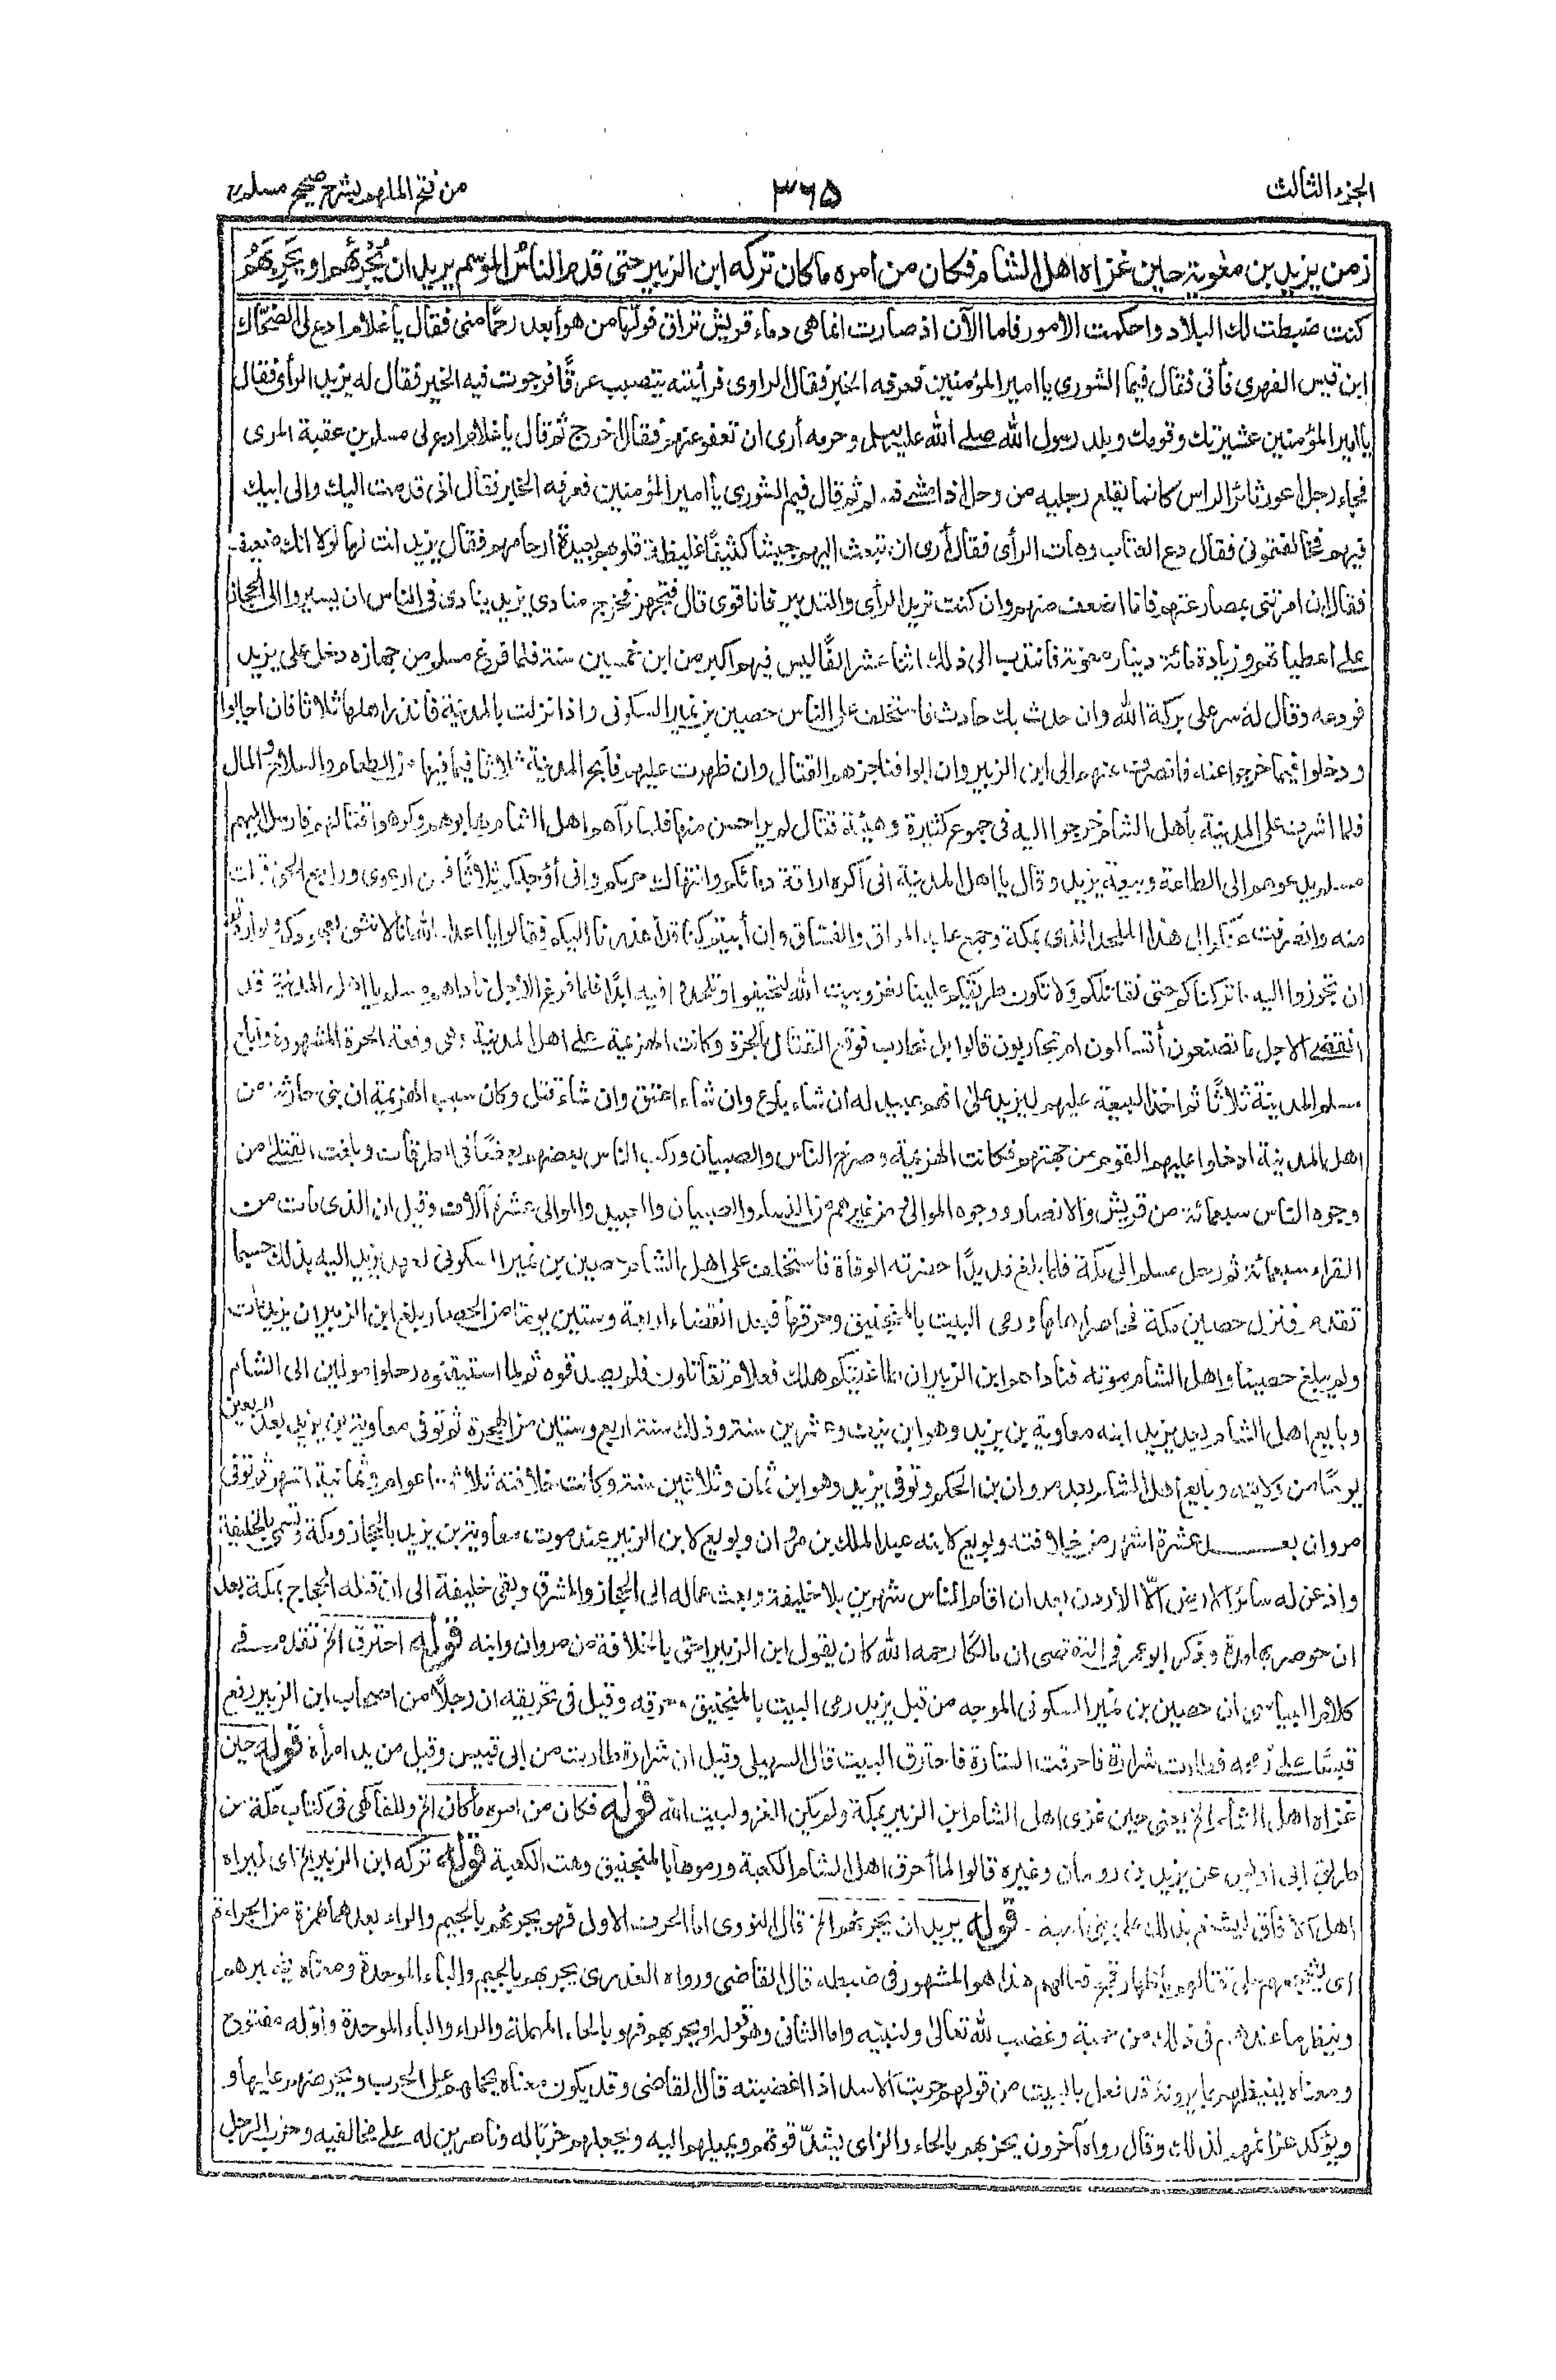 الجزء الثالث
٣٦٥
من فتح الملهم بشرح صحيح مسلم
زمن يزيد بن معٰوية حين غزاه اهل الشام فكان من امره ما كان تركه ابن الزبير حتى قدم الناسُ الموسم يريد ان يُجَرِّئَهُم او يُحَرِّبَهُمْ
كنت ضبطت لك البلاد واحكمت الامور فاما الآن اذ صارت انما هى دماء قريش تراق فولّها من هو أبعد رحمًا منى فقال يا غلام ادع لى الضحّاك
ابن قيس الفهرى فأتى فقال فيما الشورى يا امير المؤمنين فعرفه الخبر فقال الراوى فرأيته يتصبب عرقًا فرجوت فيه الخير فقال له يزيد الرأى فقال
يا امير المؤمنين عشيرتك وقومك وبلد رسول الله صلے الله عليه وسلم وحرمه أرى ان تعفو عنهم فقال اخرج ثم قال يا غلام ادع لى مسلم بن عقبة المرى
فجاء رجل اعور ثائر الراس كانما يقلع رجليه من وحل اذا مشى ثم قال فيم الشورى يا امير المؤمنين فعرفه الخبر فقال انى قدمت اليك والى ابيك
فيهم فخالفتمونى فقال دع العتاب وهات الرأى فقال أرى ان تبعث اليهم جيشا كثيفًا غليظة قلوبهم بعيدة ارحامهم فقال يزيد انت لها لولا انك ضعيف
فقال ان امرتنى بمصارعتهم فانا اضعف منهم وان كنت تريد الرأى والتدبير فانا قوى قال فتجهز فخرج منادى يزيد ينادى فى الناس ان يسيروا الى الحجاز
على اعطياتهم وزيادة مائة دينار معونة فانتدب الى ذلك اثنا عشر الفًا ليس فيهم اكبر من ابن خمسين سنة فلما فرغ مسلم من جهازه دخل على يزيد
فودعه وقال له سر على بركة الله وان حدث بك حادث فاستخلف على الناس حصين بن نمير السكونى واذا نزلت بالمدينة فانذر اهلها ثلاثا فان اجابوا
ودخلوا فيما خرجوا عنه فانصرف عنهم الى ابن الزبير وان ابوا فناجزهم القتال وان ظهرت عليهم فأبح المدينة ثلاثا فيما فيها من الطعام والسلاح والمال
فلما اشرف على المدينة بأهل الشام خرجوا اليه فى جموع كثيرة وهيئة قتال لم ير احسن منها فلما رآهم اهل الشام هابوهم وكرهوا قتالهم فارسل اليهم
مسلم يدعوهم الى الطاعة وبيعة يزيد وقال يا اهل المدينة انى اكره اراقة دمائكم وانتهاك حريمكم وانى أؤجلكم ثلاثًا فمن ارعوى وراجع الحق قبلت
منه وانصرفت عنكم الى هذا الملحد الذى بمكة وجمع عليه المراق والفساق وان أبيتم كنا قد أعذرنا اليكم فقالوا يا اعداء الله
ان تجوزوا اليه ما تركناكم حتى نقاتلكم
انقضى الاجل ما تصنعون أتسالمون ام تحاربون قالوا بل نحارب فوقع القتال بالحرة وكانت الهزيمة على اهل المدينة وهى وقعة الحرة المشهورة وأباح
مسلم المدينة ثلاثًا ثم اخذ البيعة عليهم ليزيد على انهم عبيد له ان شاء باع وان شاء اعتق وان شاء قتل وكان سبب الهزيمة ان بنى حارثة من
اهل المدينة ادخلوا عليهم القوم من جهتهم فكانت الهزيمة وركب الناس بعضهم بعضًا فى الطرقات وبلغت القتلى من
وجوه الناس سبعمائة من قريش والانصار ووجوه الموالى ومن غيرهم من النساء والصبيان والعبيد والموالى عشرة آلاف وقيل ان الذى مات من
القراء سبعمائة ثم رحل مسلم الى مكة فلما بلغ قديدًا حضرته الوفاة فاستخلف على اهل الشام حصين بن نمير السكونى لعهد يزيد اليه بذلك حسبما
تقدم فنزل حصين مكة فحاصر اهلها ورمى البيت بالمنجنيق وحرقها فبعد انقضاء اربعة وستين يومًا من الحصار بلغ ابن الزبير ان يزيد مات
ولم يبلغ حصينا واهل الشام موته فناداهم ابن الزبير ان طاغيتكم هلك فعلام تقاتلون فلم يصدقوه ثم لما استيقنوه رحلوا مولين الى الشام
وبايع اهل الشام بعد يزيد ابنه معاوية بن يزيد وهو ابن نيف وعشرين سنة وذلك سنة اربع وستين من الهجرة ثم توفى معاوية بن يزيد بعد اربعين
يومًا من ولايته وبايع اهل الشام بعد مروان بن الحكم وتوفى يزيد وهو ابن ثمان وثلاثين سنة وكانت خلافته ثلاثة اعوام وثمانية اشهر ثم توفى
مروان بعد عشرة اشهر من خلافته وبويع لابنه عبد الملك بن مروان وبويع لابن الزبير عند موت معاوية بن يزيد بالحجاز ومكة وتسمى بالخليفة
واذعن له سائر الارض الّا الأردن بعد ان اقام الناس شهرين بلا خليفة وبعث عماله الى الحجاز والمشرق وبقى خليفة الى ان قتله الحجاج بمكة بعد
ان حوصر بها مدة وذكر ابو عمر فى ان مالكا رحمه الله كان يقول ابن الزبير احق بالخلافة من مروان وابنه قوله احترق الخ تقدم فى
كلام البياسى ان حصين بن نمير السكونى الموجه من قبل يزيد رمى البيت بالمنجنيق وحرقه وقيل فى تحريقه ان رجلًا من اصحاب ابن الزبير رفع
قبسًا على رمحه فطارت شرارة فاحرقت الستارة فاحترق البيت قال السهيلى وقيل ان شرارة طارت من ابى قبيس وقيل من يد امرأة قوله حين
غزاه اهل الشام الخ يعنى حين غزى اهل الشام ابن الزبير بمكة ولم يكن الغزو لبيت الله قوله فكان من امره ما كان الخ وللفاكهى فى كتاب مكة من
طريق ابى اويس عن يزيد بن رومان وغيره قالوا لما أحرق اهل الشام الكعبة ورموها بالمنجنيق وهت الكعبة قوله تركه ابن الزبير الخ اى ليراه
اهل الآفاق ليشنع بذلك على بنى امية ۔ قوله يريد ان يجرئهم الخ قال النووى اما الحرف الاول فهو يجرئهم بالجيم والراء بعدهما همزة من الجراءة
اى يشجعهم على قتالهم باظهار قبح فعالهم هذا هو المشهور فى ضبطه قال القاضى ورواه العذرى يجربهم بالجيم والباء الموحدة ومعناه يختبرهم
وينظر ما عندهم فى ذلك من حمية وغضب لله تعالى ولنبيه واما الثانى وهو قوله او يحربهم فهو بالحاء المهملة والراء والباء الموحدة واوله مفتوح
ومعناه يغيظهم بما يرونه قد فعل بالبيت من قولهم حربت الاسد اذا اغضبته قال القاضى وقد يكون معناه يحملهم على الحرب ويحرضهم عليها و
ويؤكد عزائمهم لذلك وقال رواه آخرون يحزبهم بالحاء والزاى يشدّ قوتهم ويميلهم اليه ويجعلهم حزبًا له وناصرين له على مخالفيه وحزب الرجل